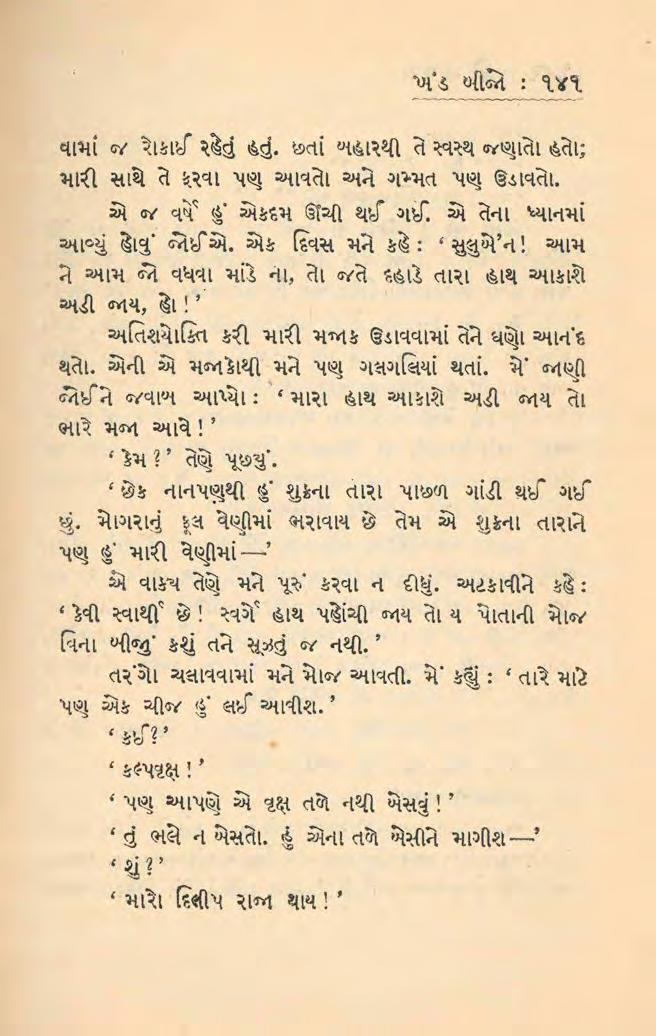 ખંડ બીજો : ૧૪૧
વામાં જ રોકાઈ રહેતું હતું. છતાં બહારથી તે સ્વસ્થ જણાતો હતો;
મારી સાથે તે ફરવા પણ આવતો અને ગમ્મત પણ ઉડાવતો.
એ જ વર્ષે હું એકદમ ઊંચી થઈ ગઈ. એ તેના ધ્યાનમાં
આવ્યું હોવું જોઈએ. એક દિવસ મને કહે : ‘ સુલુબે’ન! આમ
ને આમ જો વધવા માંડે ના, તો જતે દહાડે તારા હાથ આકાશે
અડી જાય, હો ! ’
અતિશયોક્તિ કરી મારી મજાક ઉડાવવામાં તેને ઘણો આનંદ
થતો. એની એ મજાકોથી મને પણ ગલગલિયાં થતાં. મેં જાણી
જોઈને જવાબ આપ્યો : ‘ મારા હાથ આકાશે અડી જાય તો
ભારે મજા આવે ! ’
‘ કેમ ? ’ તેણે પૂછ્યું.
‘ છેક નાનપણથી હું શુક્રના તારા પાછળ ગાંડી થઈ ગઈ
છું. મોગરાનું ફૂલ વેણીમાં ભરાવાય છે તેમ એ શુક્રના તારાને
પણ હું મારી વેણીમાં —’
એ વાક્ય તેણે મને પૂરું કરવા ન દીધું. અટકાવીને કહે :
‘ કેવી સ્વાર્થી છે ! સ્વર્ગે હાથ પહોંચી જાય તો ય પોતાની મોજ
વિના બીજું કશું તને સૂઝતું જ નથી. ’
તરંગો ચલાવવામાં મને મોજ આવતી. મેં કહ્યું : ‘ તારે માટે
પણ એક ચીજ હું લઈ આવીશ. ’
‘ કઈ? ’
‘ કલ્પવૃક્ષ ! ’
‘ પણ આપણે એ વૃક્ષ તળે નથી બેસવું ! ’
‘ તું ભલે ન બેસતો. હું એના તળે બેસીને માગીશ —’
‘ શું ? ’
‘ મારો દિલીપ રાજા થાય ! ’